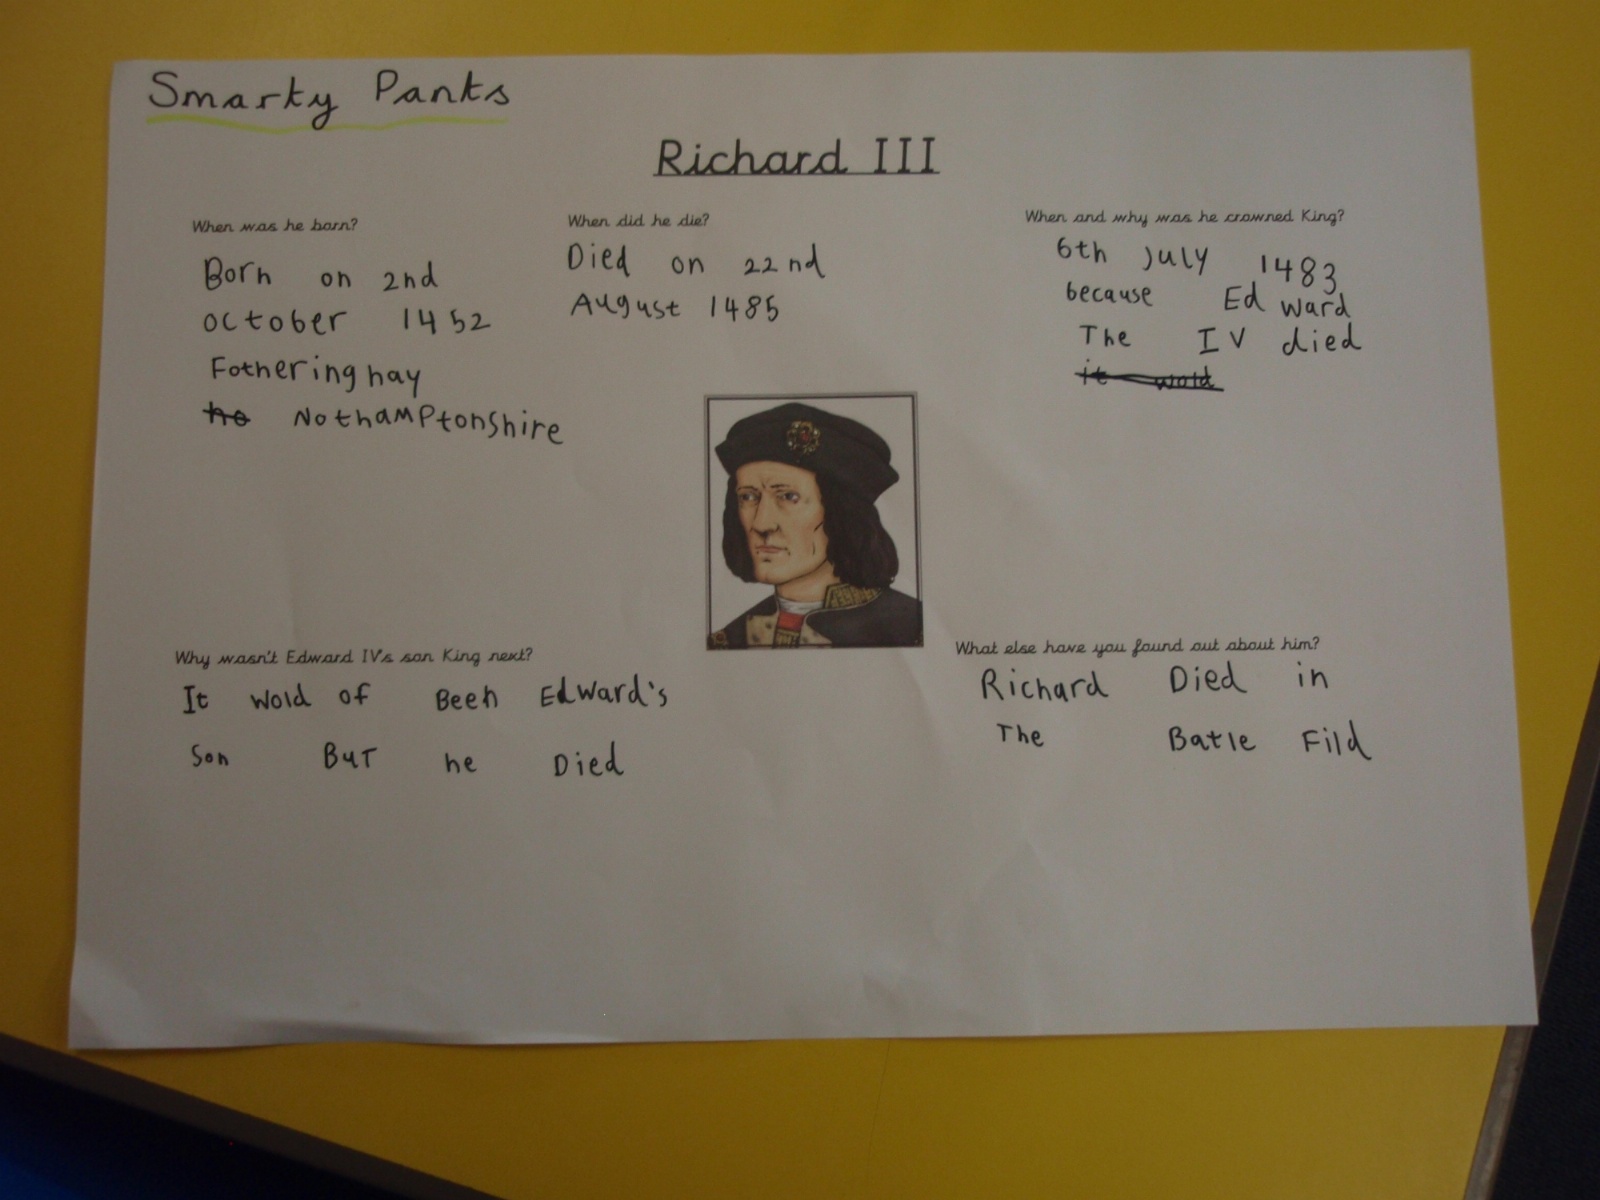 Smarty Pants
Richard III
When was he born?
Born on 2nd
october 1452
Fotheringhay
ho Nothamptonshire
When did he die?
Died on 22nd
August 1485
When and why was he crowned King?
6th July 1483
because Ed ward
The IV died
it wold
Why wasn't Edward IV's son King next?
It wold of Been Edward's
Son BuT he Died
What else have you found out about him?
Richard Died in
The Batle Fild